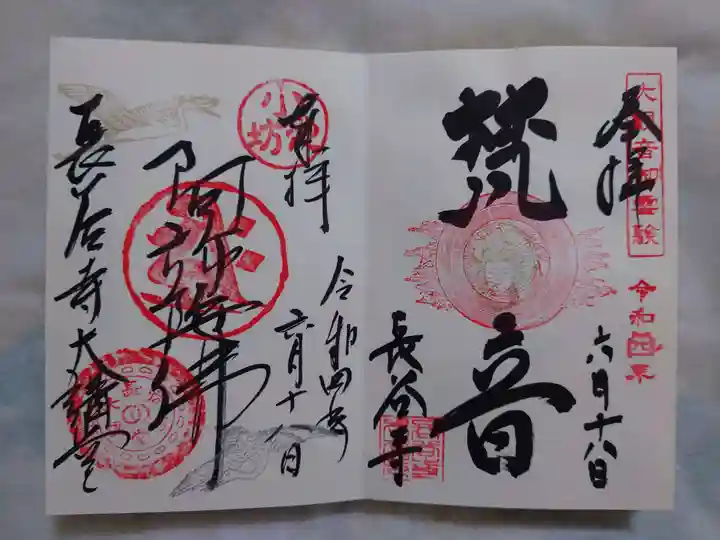 大観音御霊験
奉拝
令和四年
六月十八日
梵音
長谷寺
奉拝
令和四年
六月十八日
阿弥陀佛
長谷寺大講堂